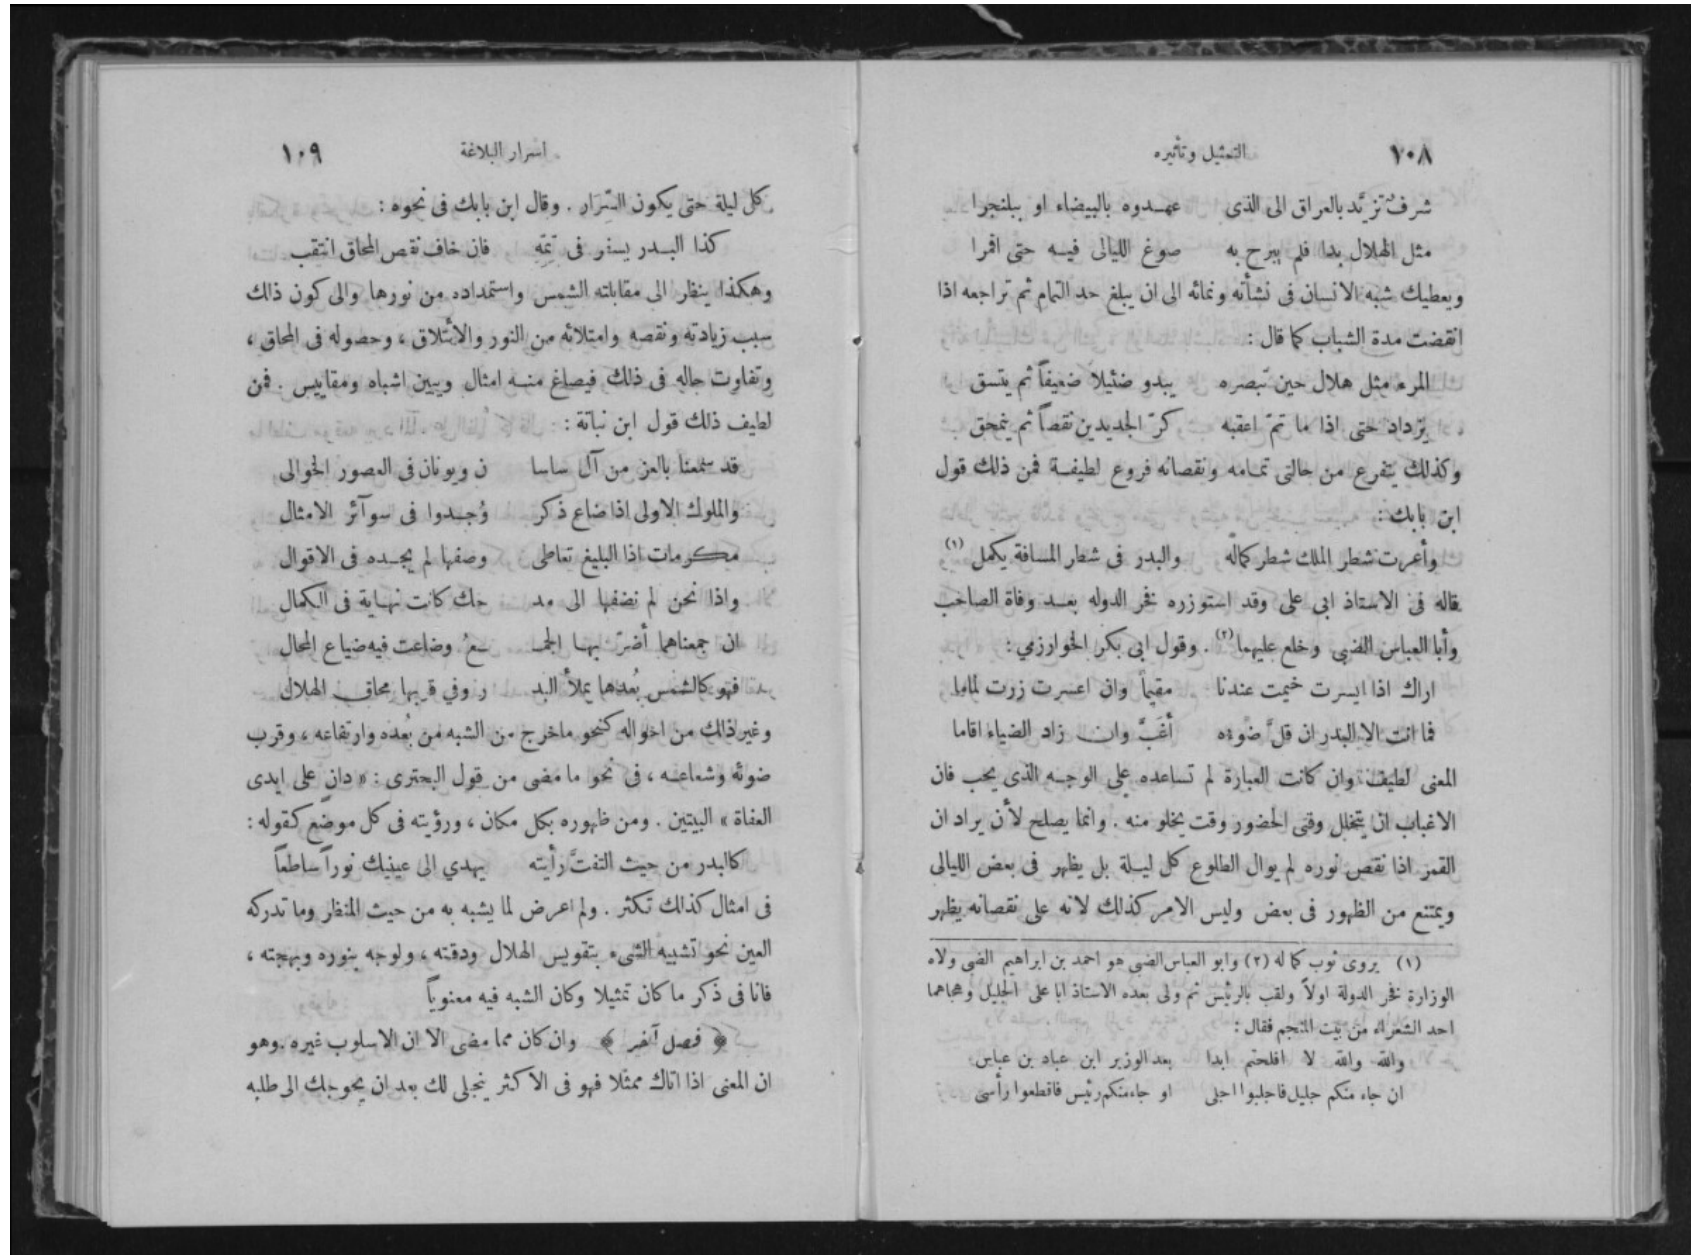 ١٠٨ التمثيل وتأثيره
شرف تزيَّد بالعراق الى الذى عهدوه بالبيضاء او ببلنجرا
مثل الهلال بدا فلم يبرح به صوغ الليالى فيه حتى اقمرا
ويعطيك شبه الانسان فى نشأته ونمائه الى ان يبلغ حد التمام ثم تراجعه اذا
انقضت مدة الشباب كما قال :
المرء مثل هلال حين تبصره يبدو ضئيلاً ضعيفاً ثم يتسق
يزداد حتى اذا ما تمّ اعقبه كرّ الجديدين نقصاً ثم ينمحق
وكذلك يتفرع من حالتى تمامه ونقصانه فروع لطيفة فمن ذلك قول
ابن بابك :
وأعرت شطر الملك شطر كماله والبدر فى شطر المسافة يكمل (١)
قاله فى الاستاذ ابى على وقد استوزره فخر الدوله بعد وفاة الصاحب
وأبا العباس الضبى وخلع عليهما (٢) . وقول ابى بكر الخوارزمي :
اراك اذا ايسرت خيمت عندنا مقيماً وان اعسرت زرت لماما
فما انت الا البدر ان قلَّ ضوءه أغَبَّ وان زاد الضياء اقاما
المعنى لطيف وان كانت العبارة لم تساعده على الوجه الذى يجب فان
الاغباب ان يتخلل وقتى الحضور وقت يخلو منه . وانما يصلح لأن يراد ان
القمر اذا نقص نوره لم يوال الطلوع كل ليلة بل يظهر فى بعض الليالى
ويمتنع من الظهور فى بعض وليس الامر كذلك لانه على نقصانه يظهر
(١) يروى ثوب كماله (٢) وابو العباس الضبى هو احمد بن ابراهيم الضبى ولاه
الوزارة فخر الدولة اولاً ولقب بالرئيس ثم ولى بعده الاستاذ ابا على الجليل وهجاهما
احد الشعراء من بيت المنجم فقال :
والله والله لا افلحتم ابدا بعد الوزير ابن عباد بن عباس
ان جاء منكم جليل فاجلبوا اجلى او جاء منكم رئيس فاقطعوا رأسى
اسرار البلاغة ١٠٩
كل ليلة حتى يكون السّرَار . وقال ابن بابك فى نحوه :
كذا البدر يسفر فى تِمّه فان خاف نقص المحاق انتقب
وهكذا ينظر الى مقابلته الشمس واستمداده من نورها والى كون ذلك
سبب زيادته ونقصه وامتلائه من النور والائتلاق ، وحصوله فى المحاق ،
وتفاوت حاله فى ذلك فيصاغ منه امثال ويبين اشباه ومقاييس . فمن
لطيف ذلك قول ابن نباتة :
قد سمعنا بالعز من آل ساسا ن ويونان فى العصور الخوالى
والملوك الاولى اذا ضاع ذكر وُجدوا فى سوآئر الامثال
مكرمات اذا البليغ تعاطى وصفها لم يجده فى الاقوال
واذا نحن لم نضفها الى مد حك كانت نهاية فى الكمال
ان جمعناهما أضرّ بها الجمـ ـعُ وضاعت فيه ضياع المحال
فهو كالشمس بُعدها يملأ البد ر وفي قربها محاق الهلال
وغير ذلك من احواله كنحو ما خرج من الشبه من بُعده وارتفاعه ، وقرب
ضوئه وشعاعه ، فى نحو ما مضى من قول البحترى : « دانٍ على ايدى
العفاة » البيتين . ومن ظهوره بكل مكان ، ورؤيته فى كل موضع كقوله :
كالبدر من حيث التفتَّ رأيته يهدي الى عينيك نوراً ساطعاً
فى امثال كذلك تكثر . ولم اعرض لما يشبه به من حيث المنظر وما تدركه
العين نحو تشبيه الشىء بتقويس الهلال ودقته ، ولوجه بنوره وبهجته ،
فانا فى ذكر ما كان تمثيلا وكان الشبه فيه معنوياً
﴿ فصل آخر ﴾ وان كان مما مضى الا ان الاسلوب غيره . وهو
ان المعنى اذا اتاك ممثلا فهو فى الاكثر ينجلى لك بعد ان يحوجك الى طلبه